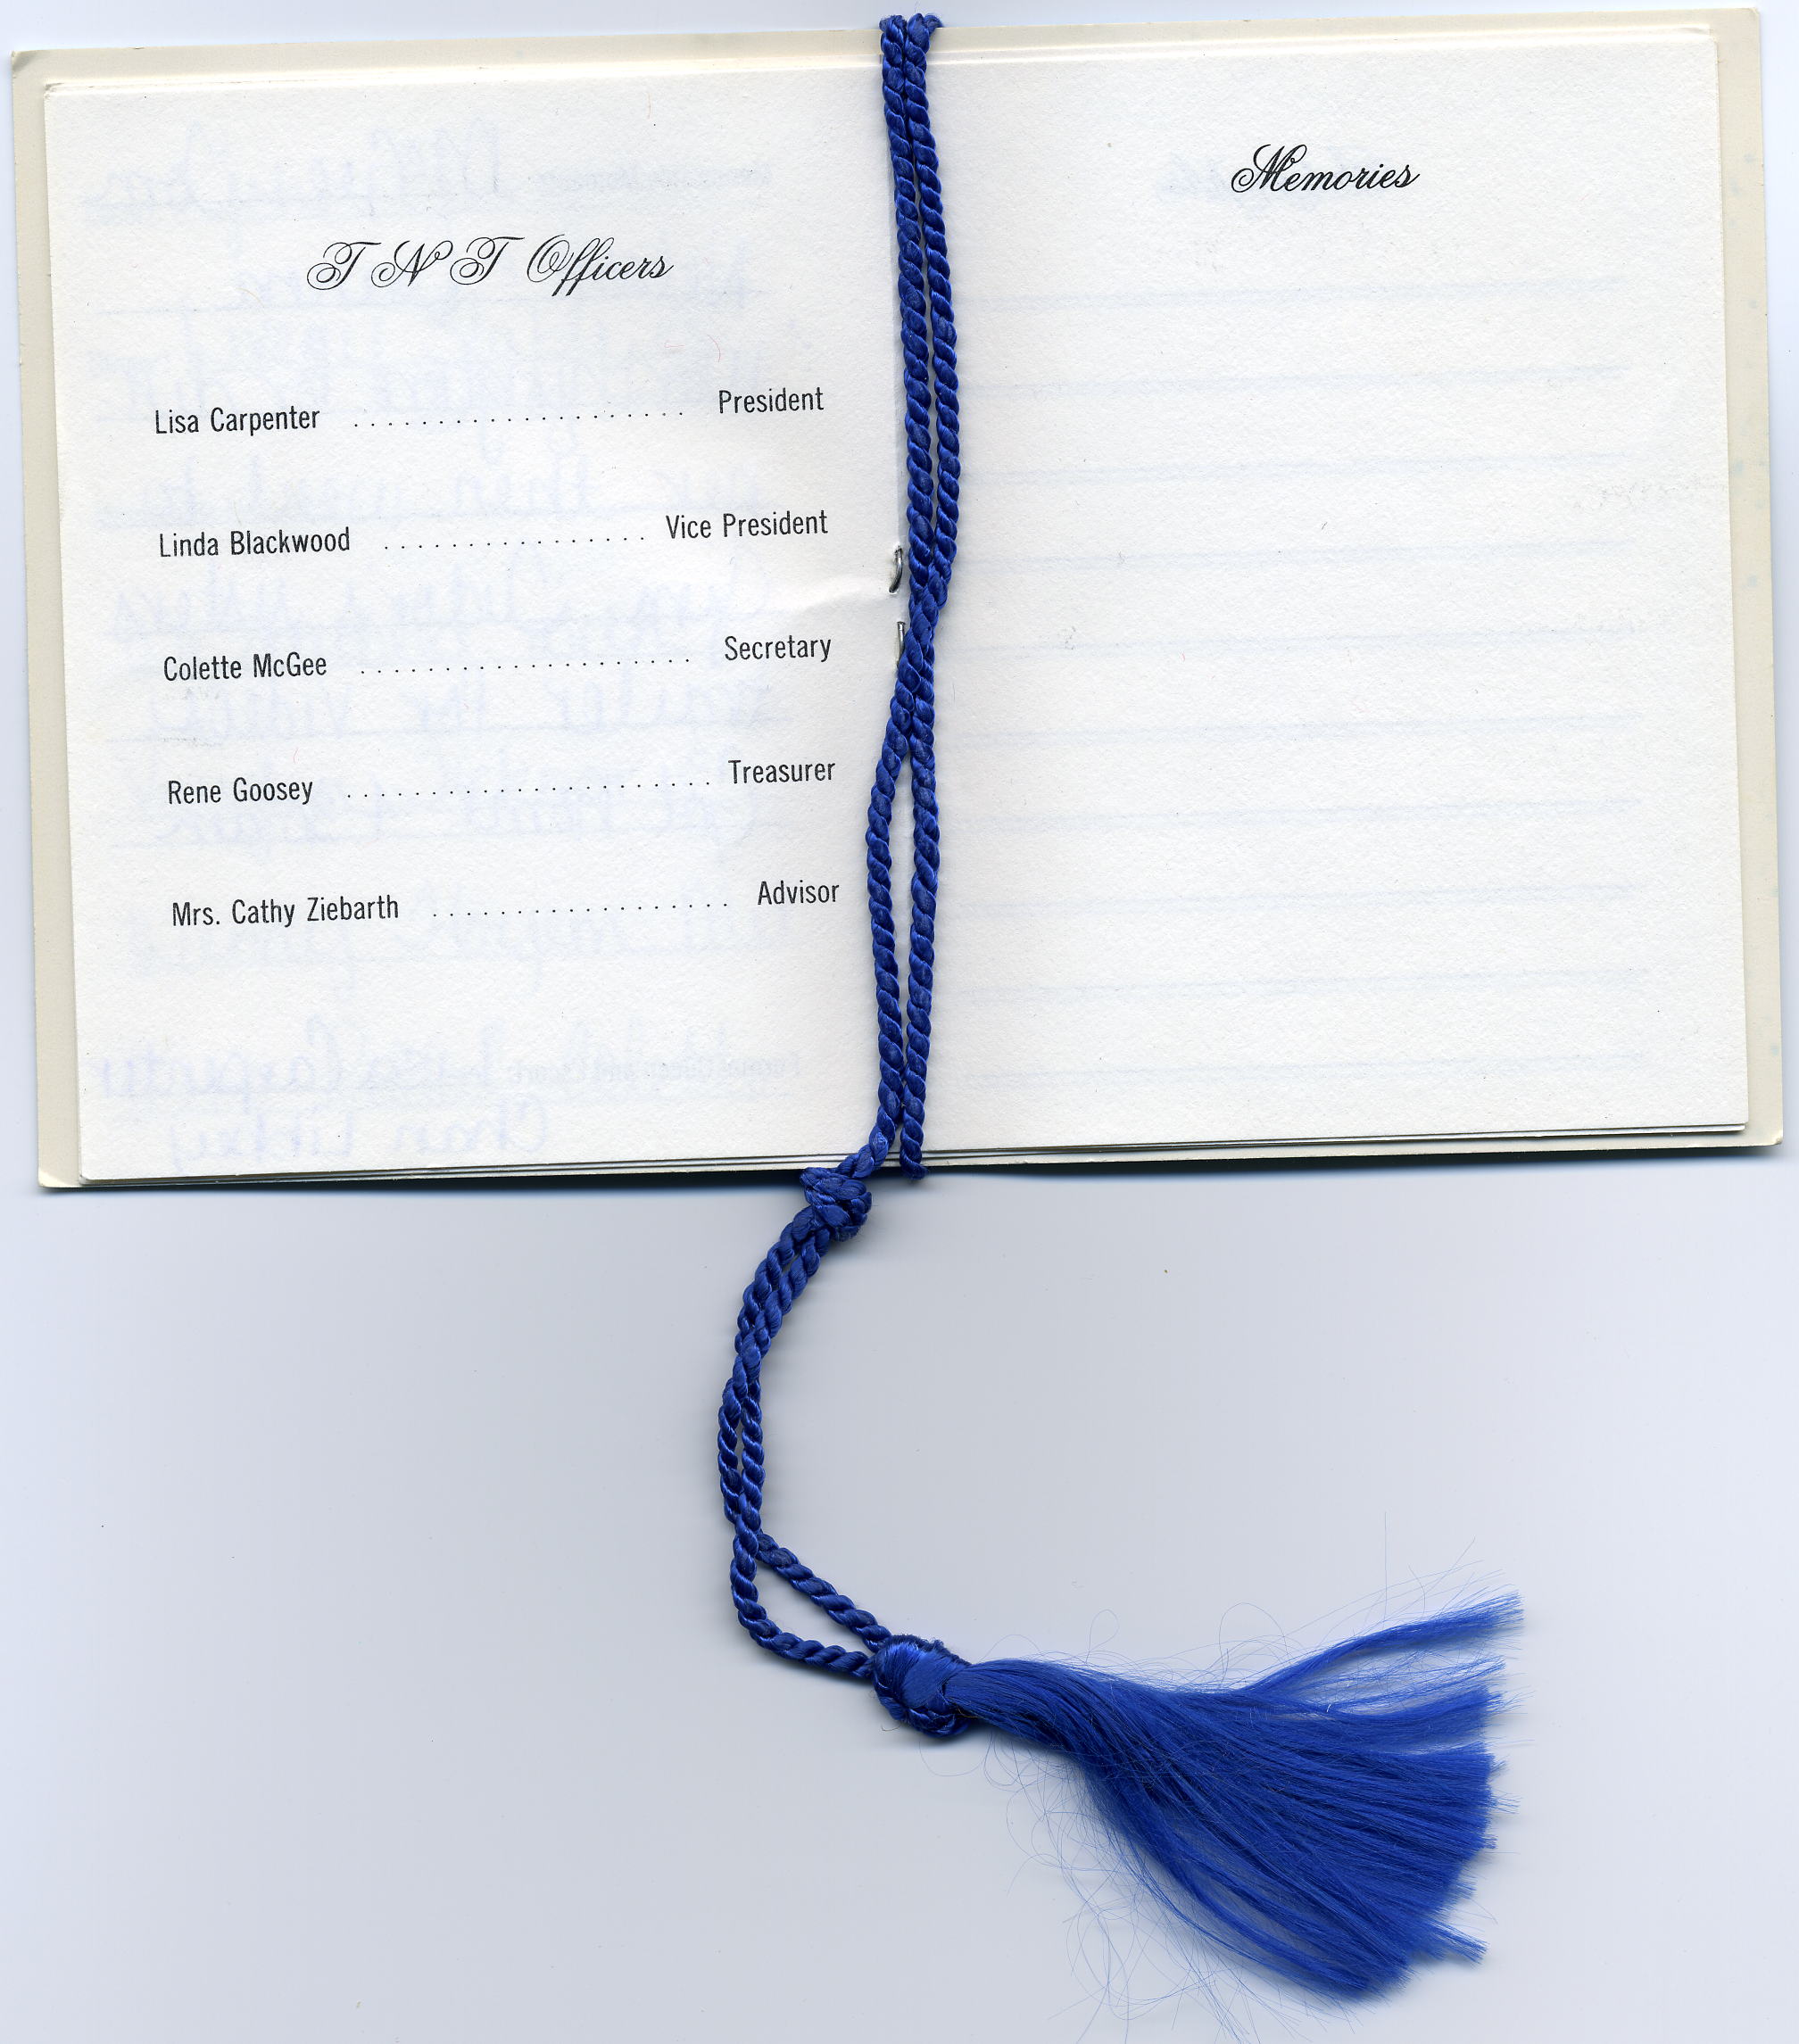 T N T Officers
Lisa Carpenter .................... President
Linda Blackwood ................ Vice President
Colette McGee ..................... Secretary
Rene Goosey ....................... Treasurer
Mrs. Cathy Ziebarth ................... Advisor
Memories